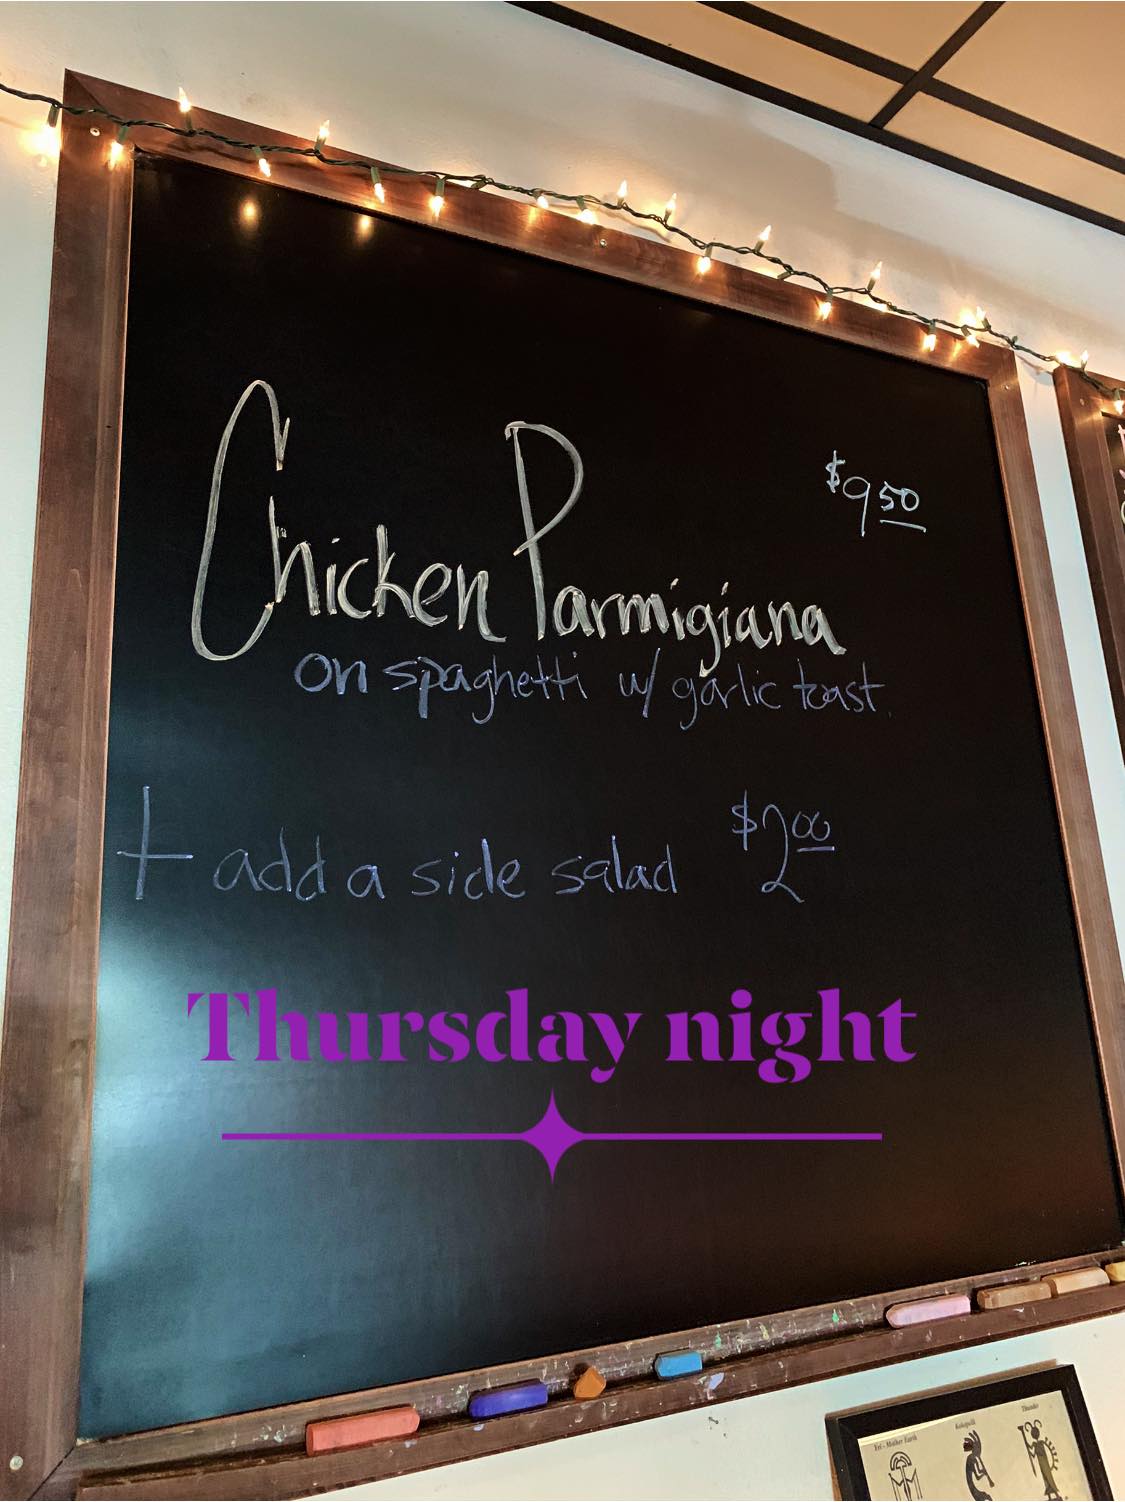 $9.50
Chicken Parmigiana
on spaghetti w/ garlic toast.
+ add a side salad $2.00
Thursday night
Yei - Mother Earth
Kokopelli